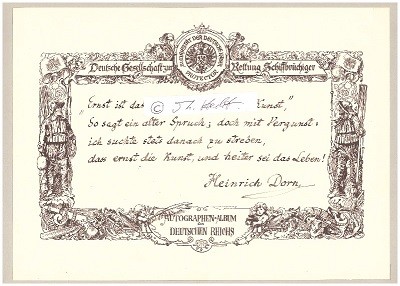 Deutsche Gesellschaft zur Rettung Schiffbrüchiger
PROTECTOR
„Ernst ist das © Kunst,"
So sagt ein alter Spruch; doch mit Vergunst:
ich suchte stets danach zu streben,
dass ernst die Kunst, und heiter sei das Leben!
Heinrich Dorn
AUTOGRAPHEN-ALBUM
des
DEUTSCHEN REICHS